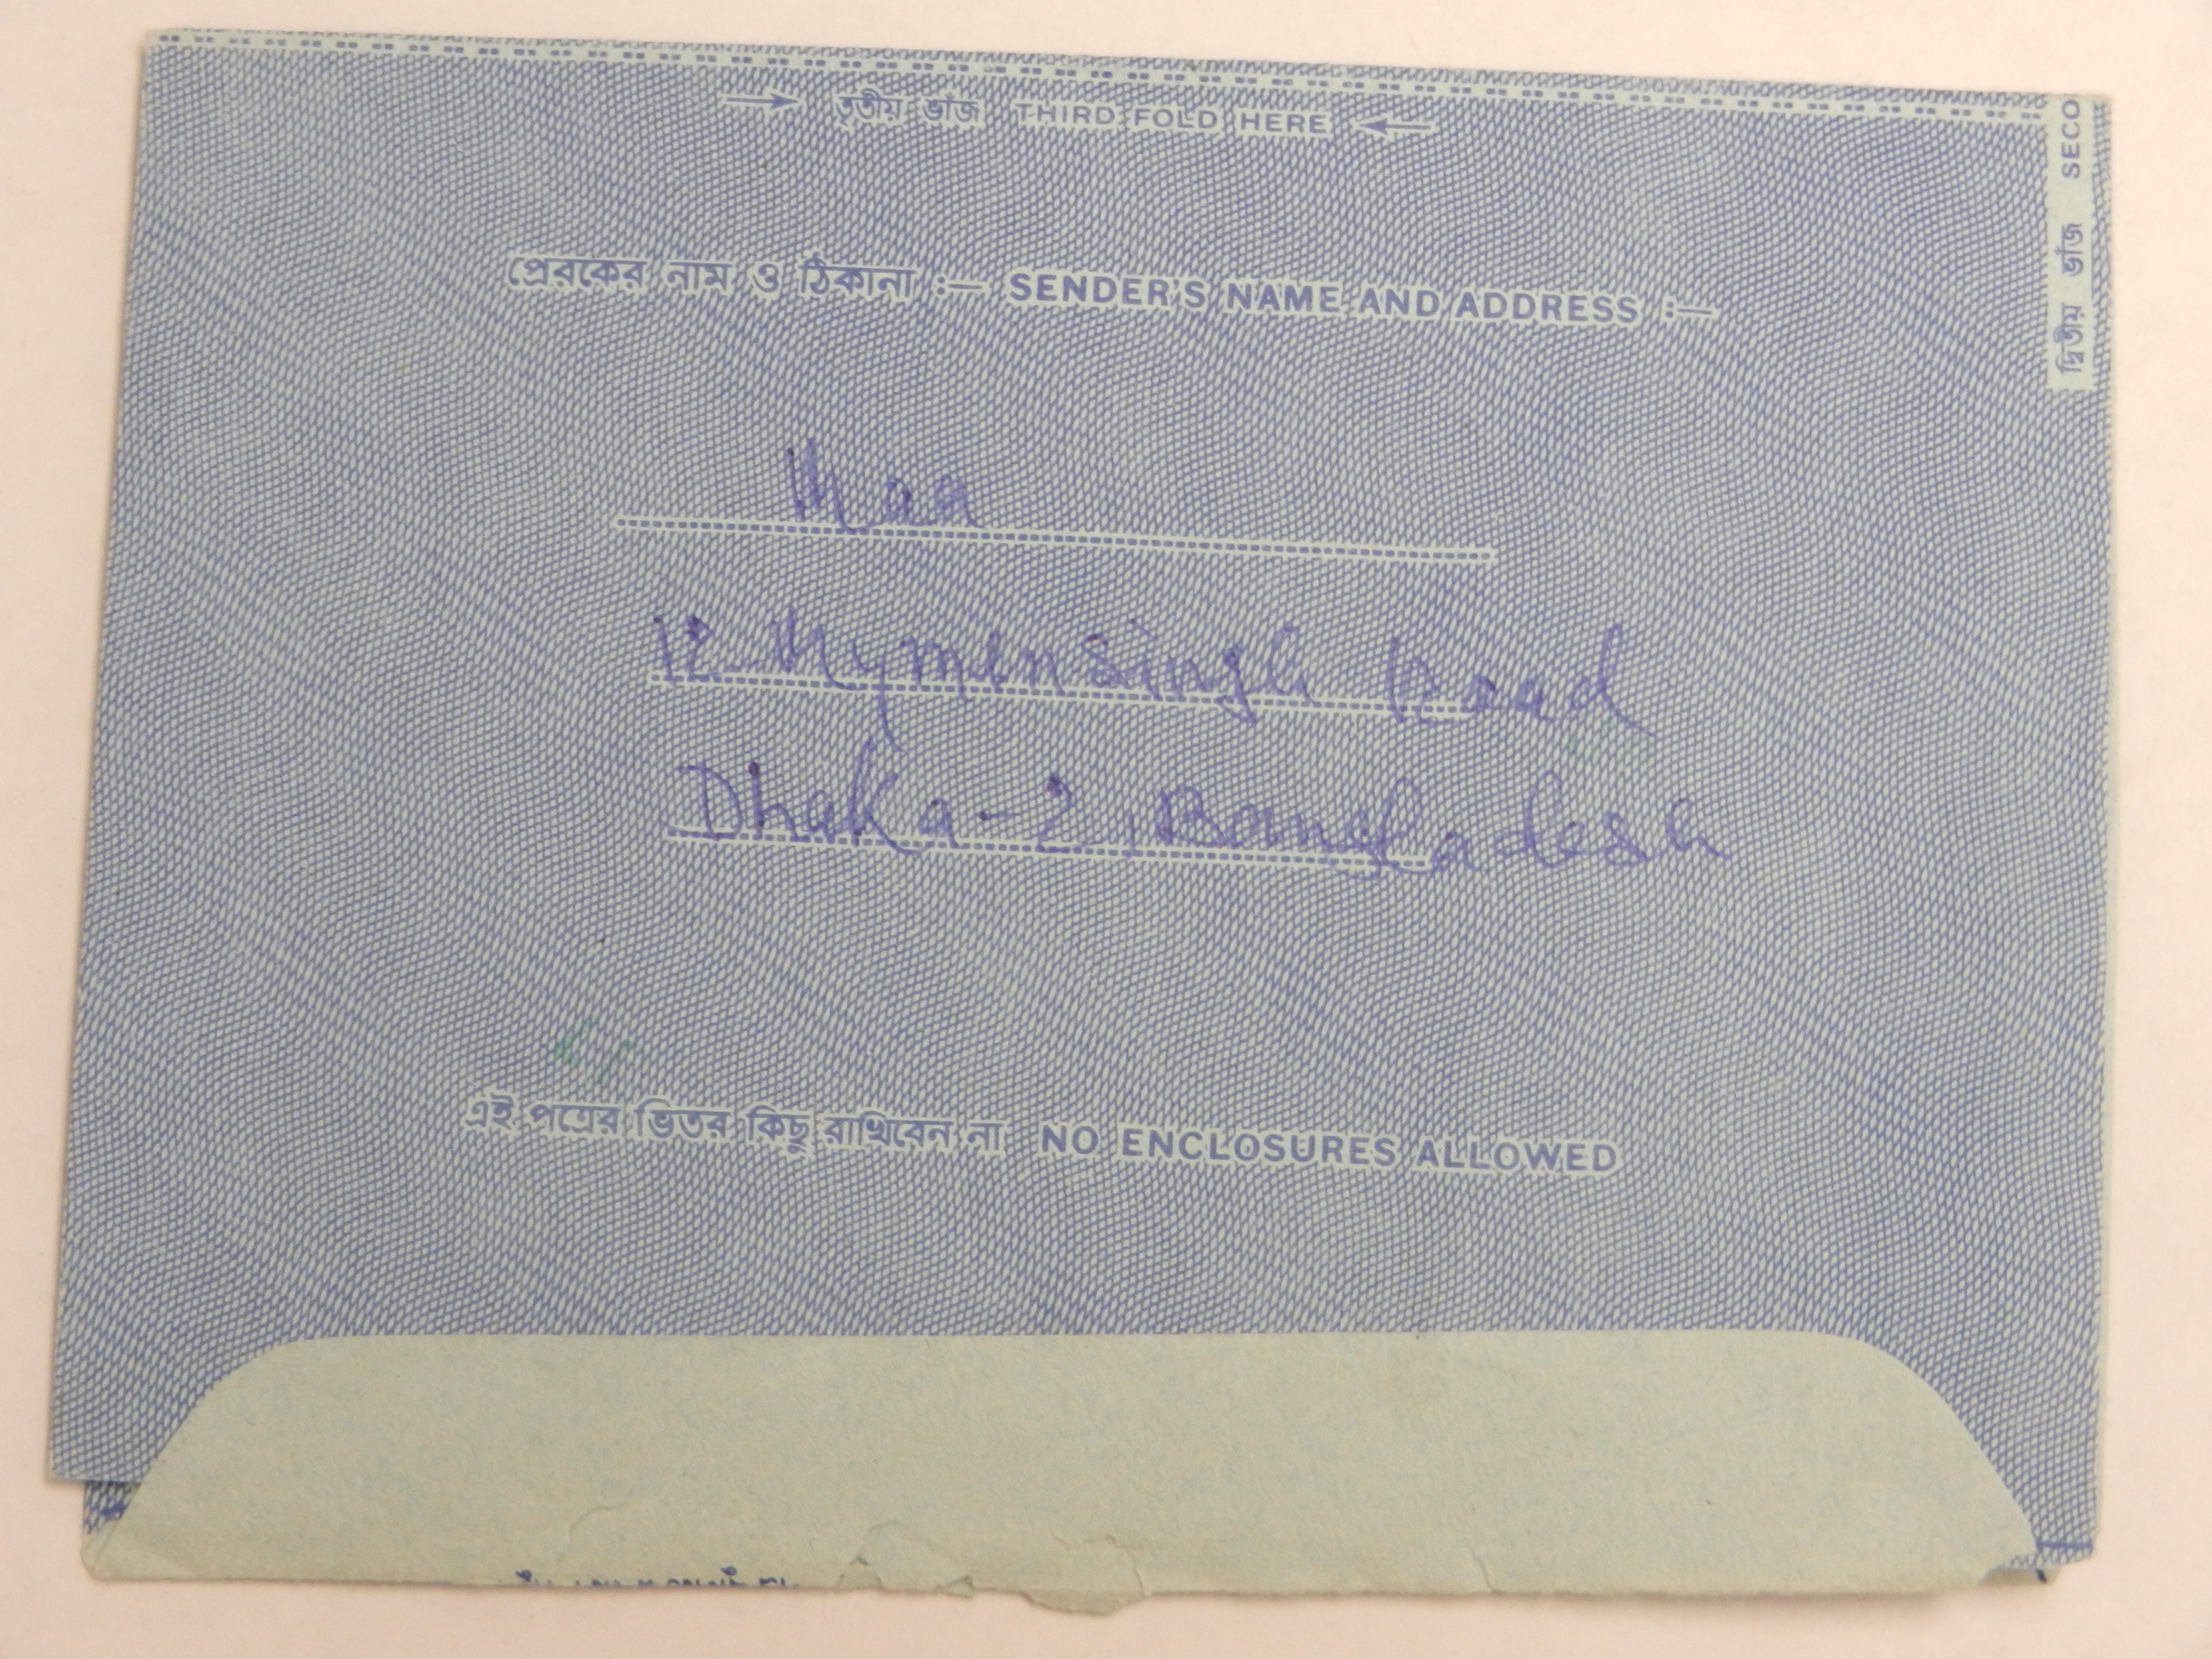 → তৃতীয় ভাঁজ THIRD FOLD HERE ←
দ্বিতীয় ভাঁজ SECO
প্রেরকের নাম ও ঠিকানা :— SENDER'S NAME AND ADDRESS :—
Maa
12-Mymensingh Road
Dhaka-2, Bangladesh
এই পত্রের ভিতর কিছু রাখিবেন না NO ENCLOSURES ALLOWED